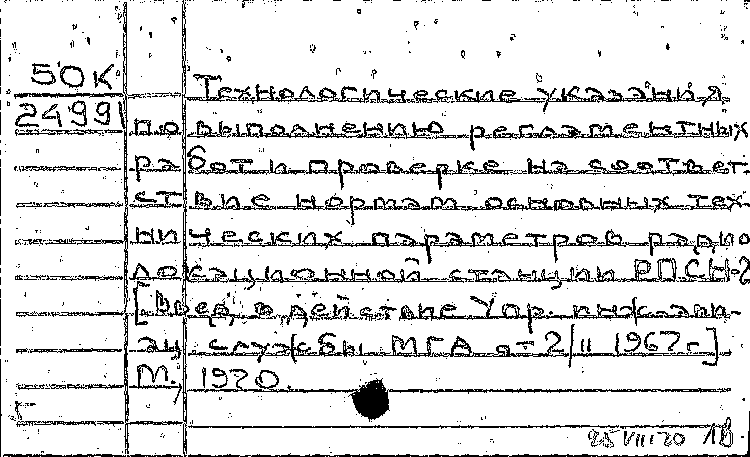 50К
24991
Технологические указания
по выполнению регламентных
работ и проверке на соответ-
ствие нормам основных тех-
нических параметров радио
локационной станции РПСН-2
[Введ. в действие Упр. инж.-ави-
ац. службы МГА от 2/II 1967г.]
М., 1970.
25 VIII 70 1В.